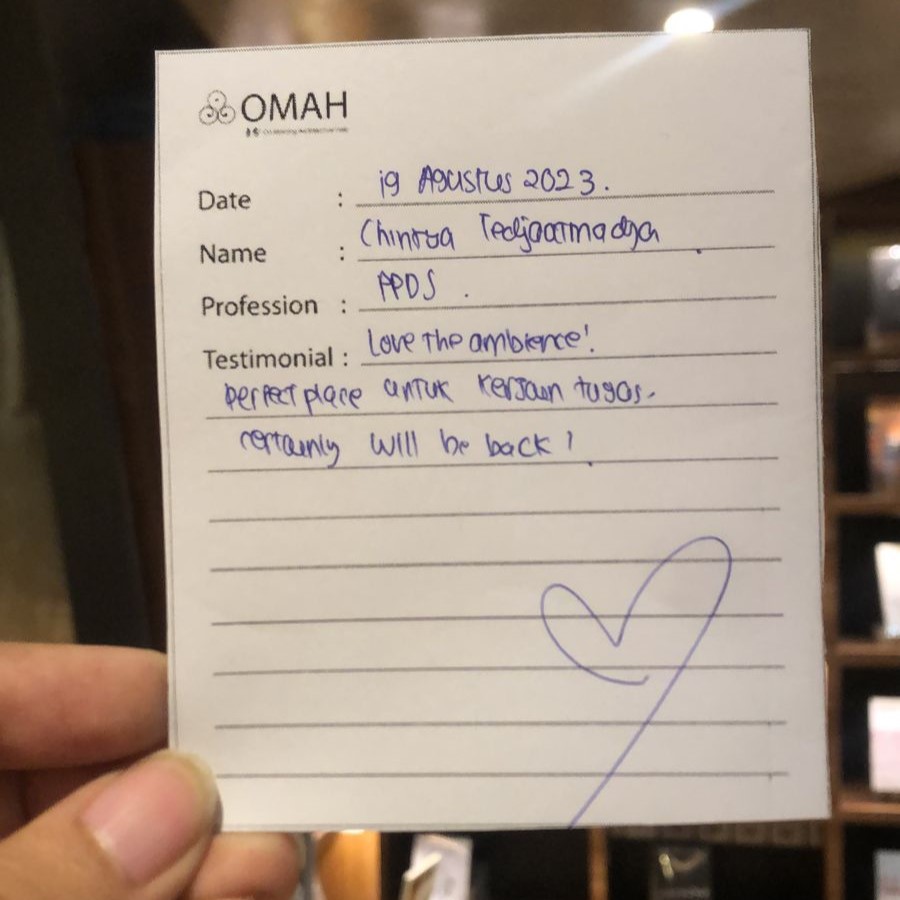 OMAH
Date : 19 Agustus 2023.
Name : Chintya Tedjaatmadja
Profession : PPDS .
Testimonial : Love the ambience!
perfect place untuk kerjain tugas.
certainly will be back!